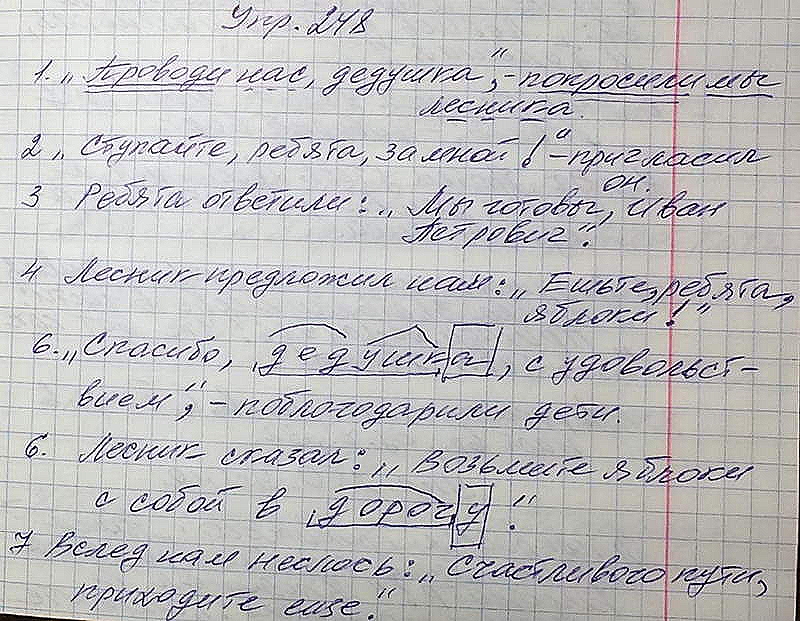 Упр. 248
1. „Проводи нас, дедушка“, - попросили мы
лесника.
2 „Ступайте, ребята, за мной!“ - пригласил
он.
3 Ребята ответили: „Мы готовы, Иван
Петрович“.
4 Лесник предложил нам: „Ешьте, ребята,
яблоки!“
6. „Спасибо, дедушка, с удовольст-
вием“, - поблогодарили дети.
6. Лесник сказал: „Возьмите яблоки
с собой в дорогу“.
7 Вслед нам неслось: „Счастливого пути,
приходите еще“.